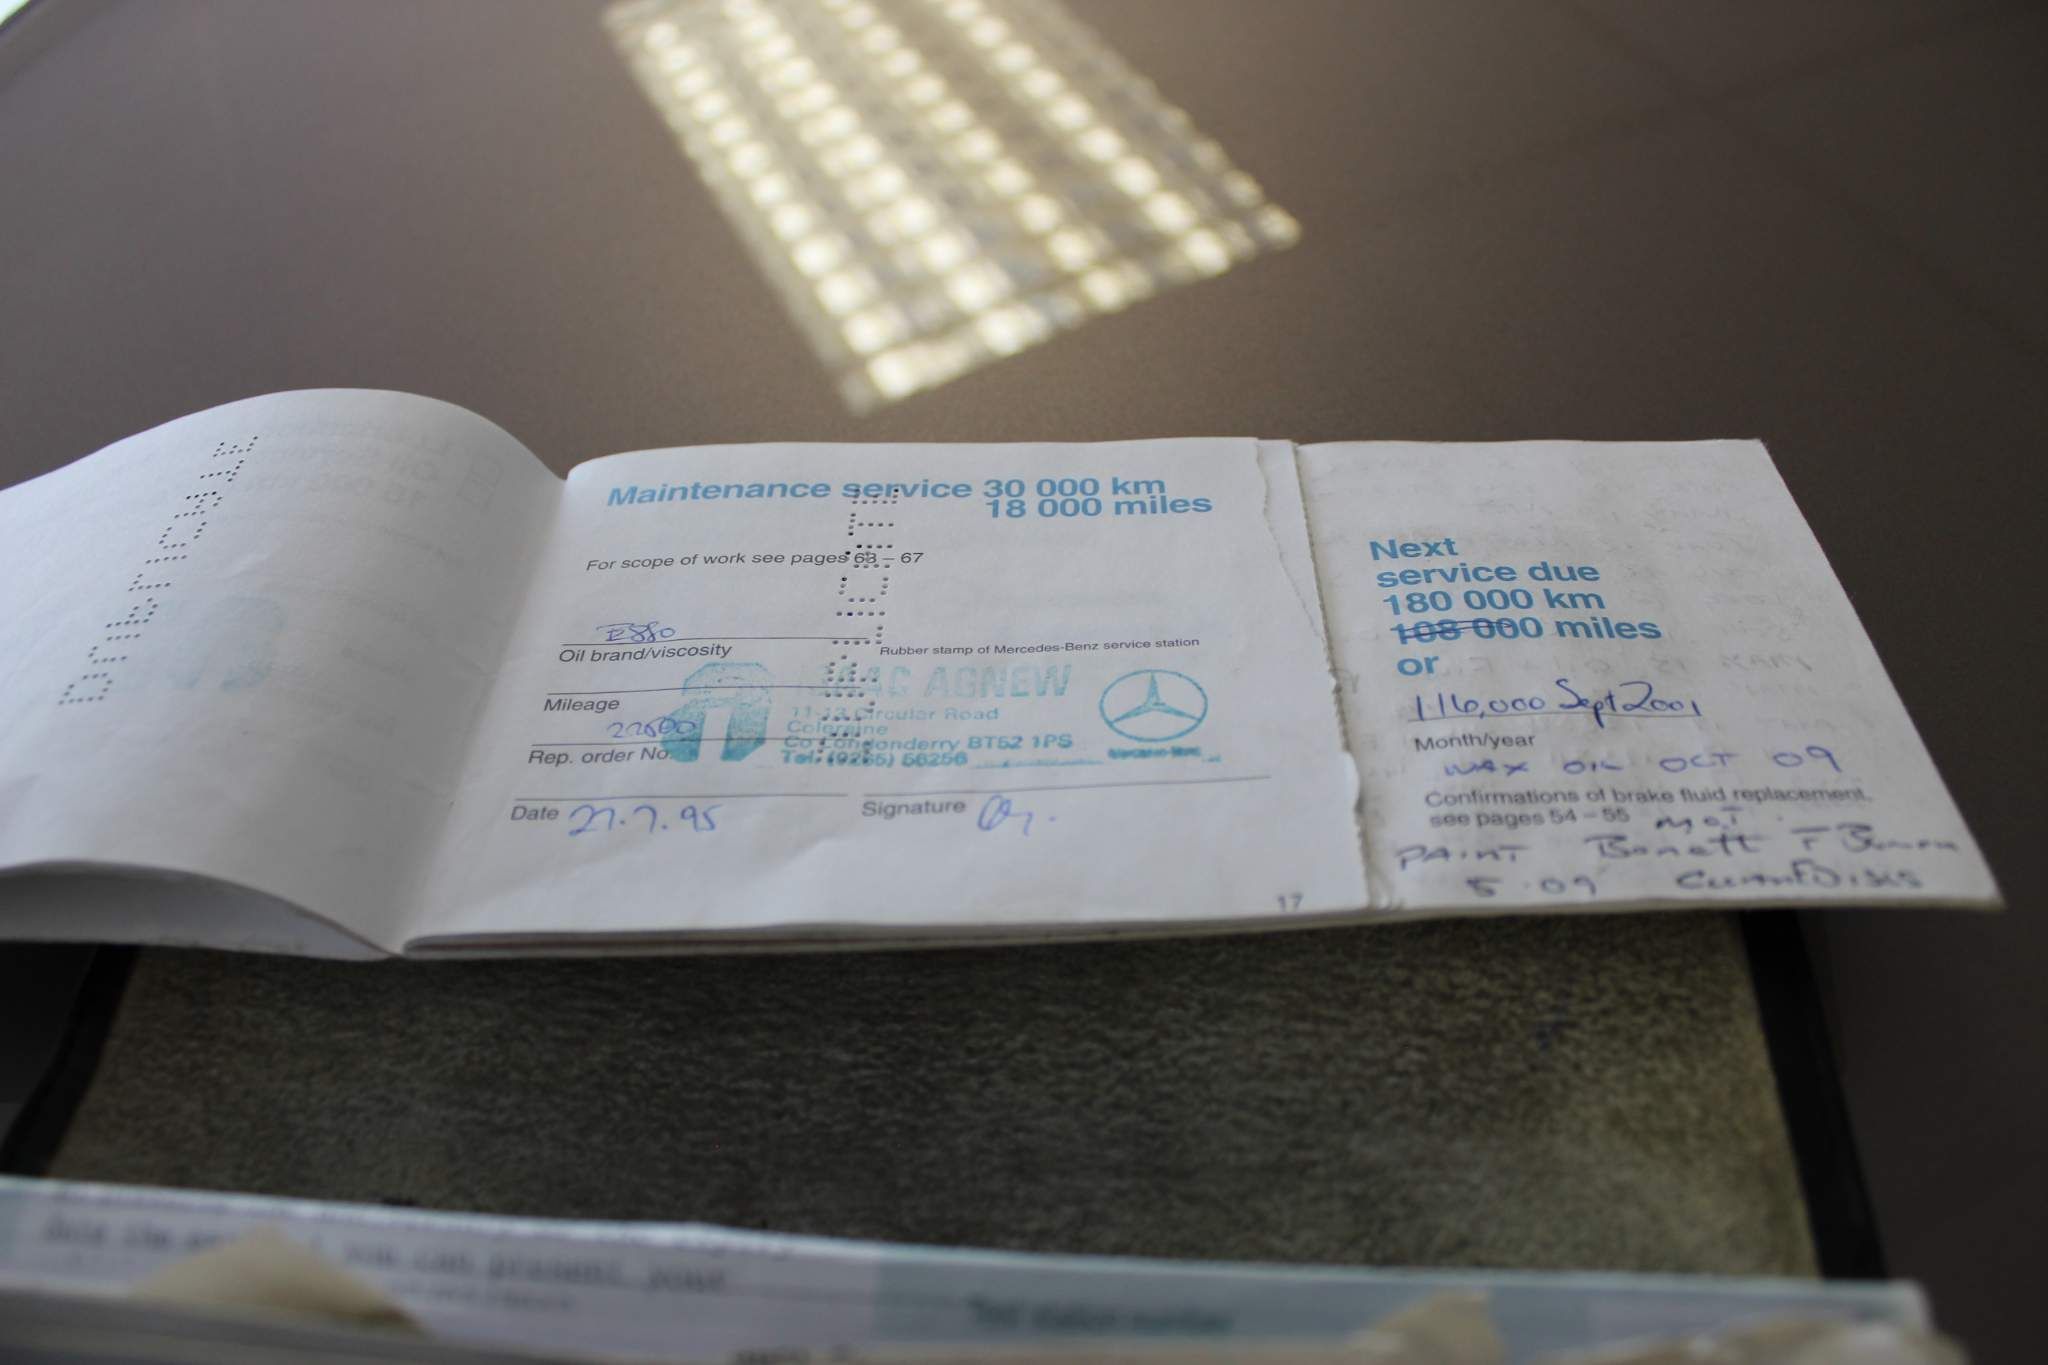 DUPLICATE
Maintenance service 30 000 km
18 000 miles
For scope of work see pages 63 – 67
Esso
Oil brand/viscosity
Rubber stamp of Mercedes-Benz service station
Mileage
22600
Rep. order No.
ISAAC AGNEW
11-13 Circular Road
Coleraine
Co Londonderry BT52 1PS
Tel: (0265) 56256
Mercedes-Benz
Date 27.7.95
Signature
17
Next
service due
180 000 km
108 000 miles
or
116,000 Sept 2001
Month/year
WAX OIL OCT 09
Confirmations of brake fluid replacement,
see pages 54 – 55 MOT
PAINT Bonett F
5.09
can present your